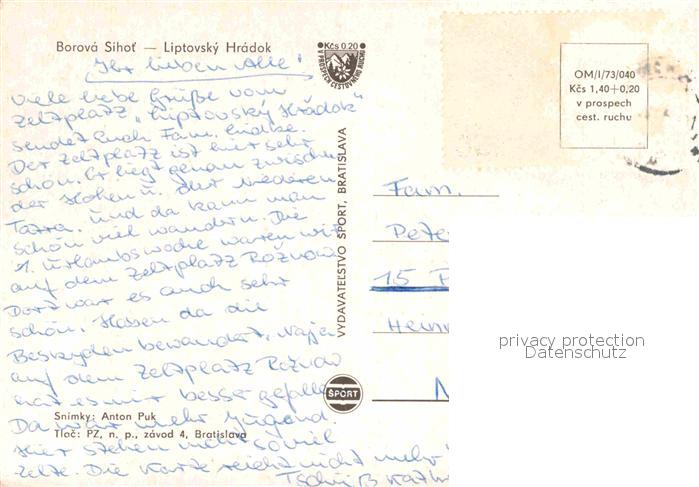 Borová Sihoť — Liptovský Hrádok
Ihr lieben Alle!
Viele liebe Grüße vom
Zeltplatz "Liptovský Hrádok"
sendet Euch Fam.
Der Zeltplatz ist hier sehr
schön. Er liegt genau zwischen
der Hohen u. der Niederen
Tatra. Und da kann man
schön viel wandern. Die
1. Urlaubswoche waren wir
auf dem Zeltplatz Rožnow
Dort war es auch sehr
schön. Haben da die
Beskyden bewandert. Naja
auf dem Zeltplatz Rožnow
hat es mir besser gefallen
Da war mehr Jugend.
Hier stehen mehr soviel
Zelte. Die Karte reicht nicht mehr
Tschüß Kath
Snímky: Anton Puk
Tlač: PZ, n. p., závod 4, Bratislava
Kčs 0.20
V PROSPECH CESTOVNÉHO RUCHU
VYDAVATEĽSTVO ŠPORT, BRATISLAVA
ŠPORT
OM/I/73/040
Kčs 1,40+0,20
v prospech
cest. ruchu
Fam.
Pete
15 P
Hein
N
privacy protection
Datenschutz